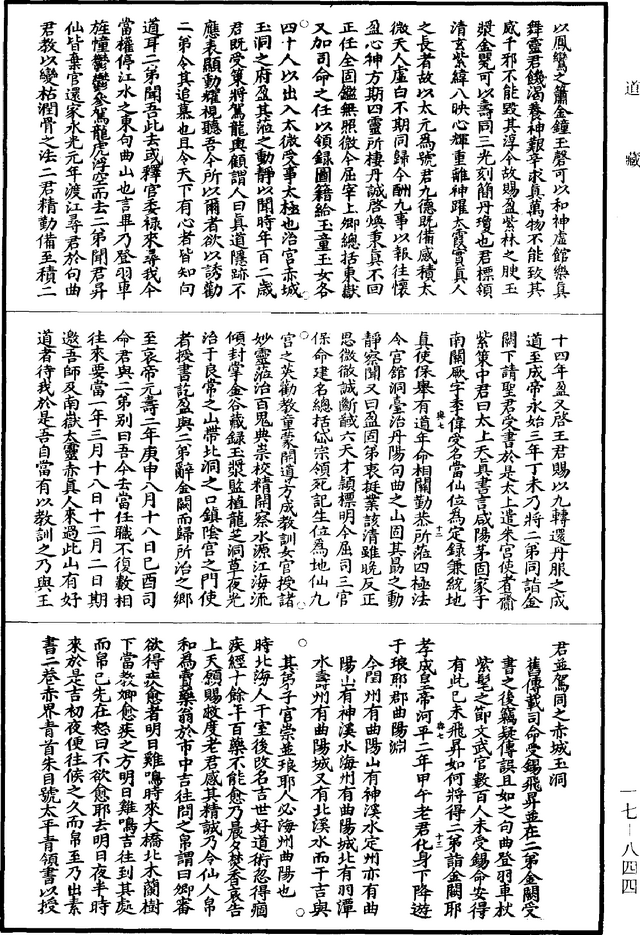 道藏
以鳳鸞之簫金鐘玉磬可以和神虛館樂真
舞靈君饑渴養神艱辛求真萬物不能致其
惑千邪不能毀其淳今故賜盈紫林之腴玉
漿金甖可以壽同三光刻簡丹瓊也君標領
清玄紫緯八映心輝重離神躍太霞實真人
之長者故以太元為號君九德既備感積太
微天人虛白不期同歸今酬九事以報往懷
盈心神方期四靈所棲丹誠啓煥秉真不回
正任全固鑑無照微今屈宰上卿總括東嶽
又加司命之任以領錄圖籍給玉童玉女各
四十人以出入太微受事太極也治宫赤城
玉洞之府盈其莅之動靜以聞時年百二歲
君既受策將駕龍輿顧謂人曰真道隱跡不
應表顯動耀視聽吾今所以爾者欲以誘勸
二弟令其追慕也且令天下有心者皆知向
道耳二弟聞吾此去或釋官委祿來尋我今
當權停江水之東句曲山也言畢乃登羽車
旌幢鬱鬱參駕龍虎浮空而去二弟聞君昇
仙皆棄官還家永光元年渡江尋君於句曲
君教以變枯潤骨之法二君精勤備至積二
十四年盈又啓王君賜以九轉還丹服之成
道至成帝永始三年丁未乃將二弟同詣金
闕下請聖君受書於是太上遣朱宮使者齎
紫策中君曰太上天真書言咸陽茅固家于
南關厥字季偉受名當仙位為定錄兼統地
真使保舉有道年命相關勤恭所莅四極法
令宮館洞臺治丹陽句曲之山固其勗之動
靜察聞又曰盈固第衷挺業該清雖晚反正
思微徵誠斷馘六天才穎標明今屈司三官
保命建名總括岱宗領死記生位為地仙九
宫之英勸教童蒙開道方成教訓女官授諸
妙靈蒞治百鬼典崇校精開察水源江海流
傾封掌金谷藏錄玉漿監植龍芝洞草夜光
治于良常之山帶北洞之口鎮陰宫之門使
者授書訖盈與二弟辭金闕而歸所治之鄉
至哀帝元壽二年庚申八月十八日己酉司
命君與二弟别曰吾今去當任職不復數相
往來要當一年三月十八日十二月二日期
邀吾師及南嶽太靈赤真人來過此山有好
道者待我於是吾自當有以教訓之乃與王
君並駕同之赤城玉洞
舊傳載司命受錫飛昇並在二弟金闕受
書之後竊疑傳誤且如之句曲登羽車杖
紫髦之節文武官數百人未受錫命安得
有此已未飛昇如何將得二弟詣金闕耶
孝成皇帝河平二年甲午老君化身下降遊
于琅耶郡曲陽淵
今閬州有曲陽山有神溪水定州亦有曲
陽山有神溪水海州有曲陽城北有羽潭
水壽州有曲陽城又有北溪水而于吉與
其弟子宮崇並琅耶人必海州曲陽也
時北海人干室後改名吉世好道術忽得痼
疾經十餘年百藥不能愈乃晨夕焚香哀告
上天願賜救度老君感其精誠乃令仙人帛
和為賣藥翁於市中吉往問之帛謂曰卿審
欲得疾愈者明日雞鳴時來大橋北木蘭樹
下當教卿愈疾之方明日雞鳴吉往到其處
而帛已先在怒曰不欲愈耶去明日夜半時
來於是吉初夜便往候之久而帛至乃出素
書二卷赤界青首朱目號太平青領書以授
一七—八四四